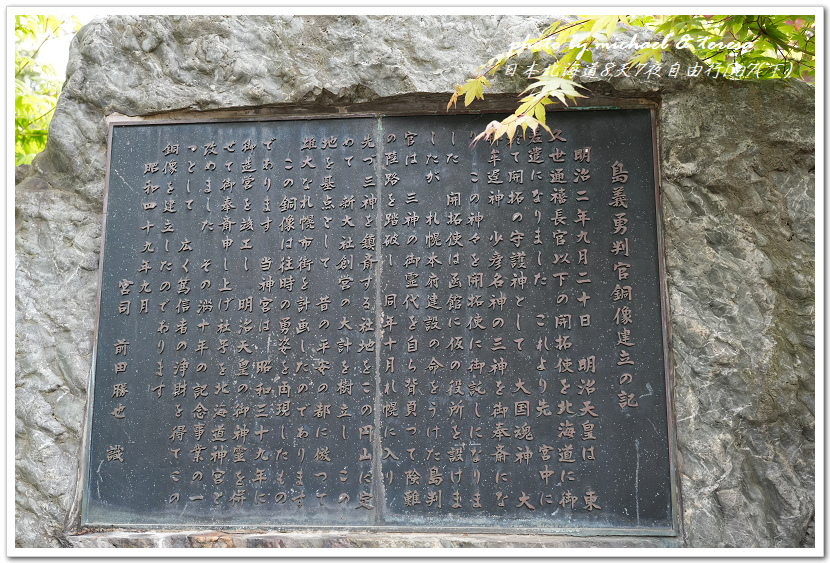 photo by michael & teresa
日本北海道8天7夜自由行
島義勇判官銅像建立の記
明治二年九月二十日　明治天皇は　東
久世通禧長官以下の開拓使を北海道に御
差遣になりました　これより先　宮中に
於て開拓の守護神として　大国魂神　大
那牟遅神　少彦名神の三神を御奉斎にな
り　この神々を開拓使に御託しになりま
した　開拓使は函館に仮の役所を設けま
したが　札幌本府建設の命をうけた島判
官は　三神の御霊代を自ら背負って険難
の陸路を踏破し　同年十月札幌に入り
先づ三神を鎮斎する社地をこの円山に定
めて　新大社創営の大計を樹立し　この
地を基点として　昔の平安の都に倣って
雄大な札幌市街を計画したのであります
この銅像は往時の勇姿を再現したもの
であります　当神宮は　昭和三十九年に
御造営を竣工し　明治天皇の御神霊を併
せて御奉斎申し上げ社号を北海道神宮と
改めました　その満十年の記念事業の一
つとして　広く篤信者の浄財を得てこの
銅像を建立したのであります
昭和四十九年九月
宮司　前田勝也　識